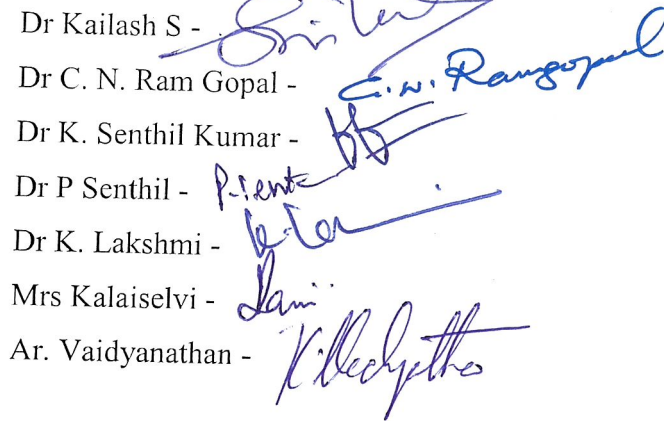 Dr Kailash S -
Dr C. N. Ram Gopal - C.N. Ramgopal
Dr K. Senthil Kumar -
Dr P Senthil -
Dr K. Lakshmi -
Mrs Kalaiselvi -
Ar. Vaidyanathan -